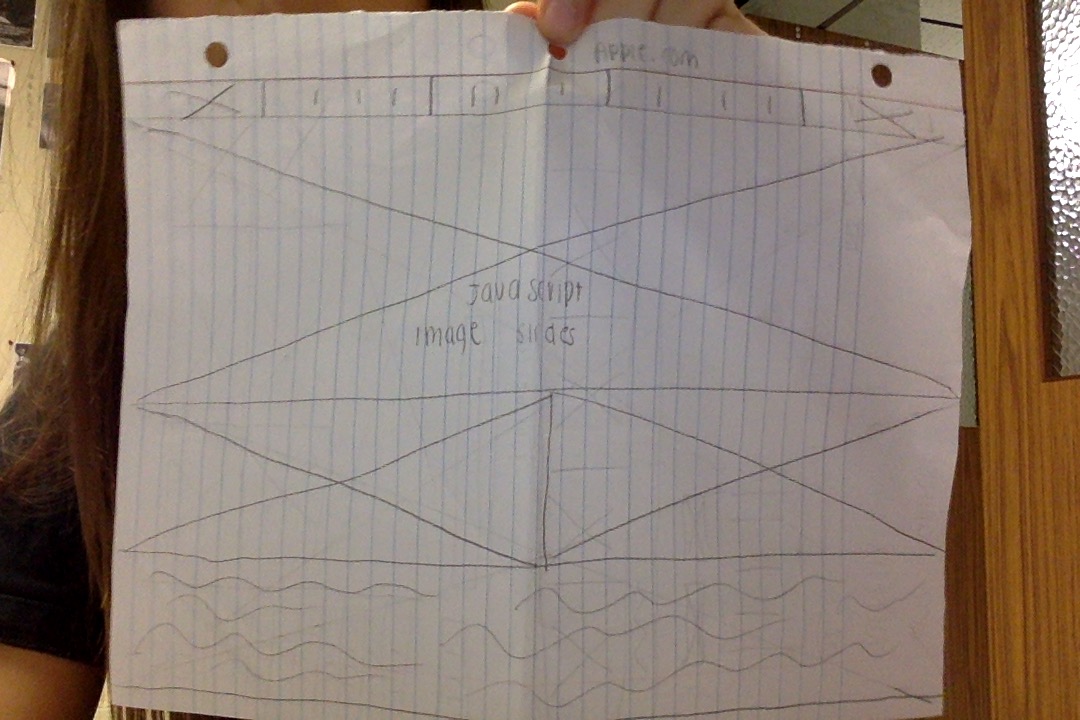 Apple.com
JavaScript
image slides